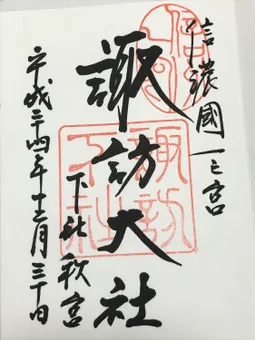 信濃國一之宮
諏訪大社
下社秋宮
平成二十四年十二月三十日
諏訪
下社